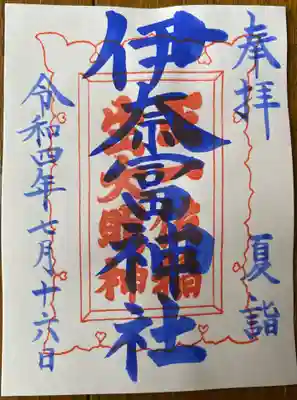 奉拝　夏詣
伊奈冨神社
令和四年七月十六日